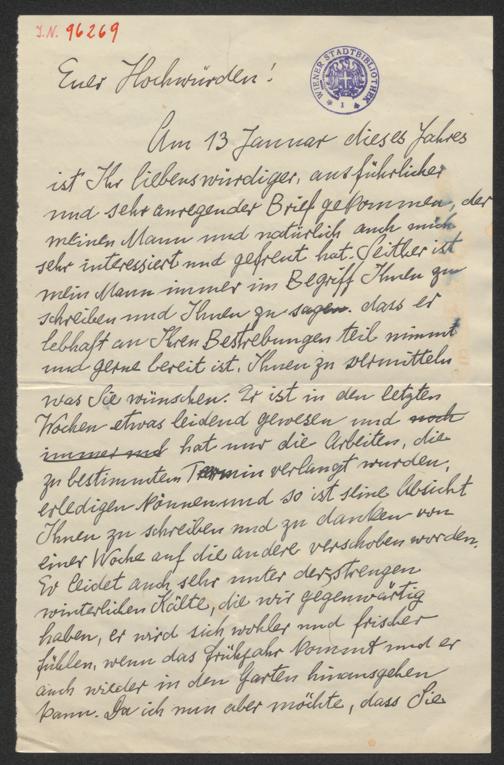 J.N. 96269
WIENER STADTBIBLIOTHEK
1
Euer Hochwürden!
Am 13 Januar dieses Jahres
ist Ihr liebenswürdiger, ausführlicher
und sehr anregender Brief gekommen, der
meinen Mann und natürlich auch mich
sehr interessiert und gefreut hat. Seither ist
mein Mann immer im Begriff Ihnen zu
schreiben und Ihnen zu sagen. dass er
lebhaft an Ihren Bestrebungen teil nimmt
und gerne bereit ist, Ihnen zu vermitteln
was Sie wünschen. Er ist in den letzten
Wochen etwas leidend gewesen und noch
immer und hat nur die Arbeiten, die
zu bestimmtem Termin verlangt wurden,
erledigen können und so ist seine Absicht
Ihnen zu schreiben und zu danken von
einer Woche auf die andere verschoben worden.
Er leidet auch sehr unter der strengen
winterlichen Kälte, die wir gegenwärtig
haben, er wird sich wohler und frischer
fühlen, wenn das Frühjahr kommt und er
auch wieder in den Garten hinausgehen
kann. Da ich nun aber möchte, dass Sie